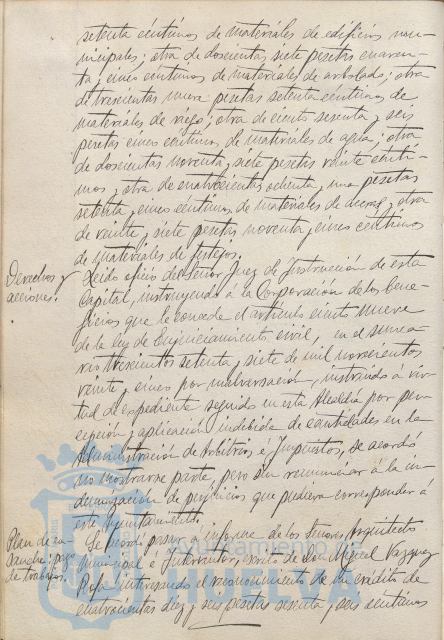 setenta céntimos de materiales de edificios mu-
nicipales; otra de doscientas siete pesetas cuaren-
ta y cinco céntimos de materiales de arbolado; otra
de trescientas nueve pesetas setenta céntimos de
materiales de riego; otra de ciento sesenta y seis
pesetas cinco céntimos de materiales de agua; otra
de doscientas noventa y siete pesetas veinte cénti-
mos y otra de cuatrocientas ochenta y una pesetas
setenta y cinco céntimos de materiales de ; otra
de veinte y siete pesetas noventa y cinco céntimos
de materiales de festejos.
Derechos y
acciones.
Leido oficio del Señor Juez de Instrucción de esta
Capital, instruyendo á la Corporación de los bene-
ficios que le concede el artículo ciento nueve
de la Ley de Enjuiciamiento civil, en el suma-
rio trescientos setenta y siete de mil novecientos
veinte y cinco por malversación, instruido á vir-
tud de expediente seguido en esta Alcaldía por per-
cepción y aplicación indebida de cantidades en la
Administración de Arbitrios é Impuestos, se acordó
no mostrarse parte, pero sin renunciar á la in-
demnización de perjuicios que pudiera corresponder á
este Ayuntamiento.
Plan de en-
sanche; pago
de trabajos.
Se acordó pasar á informe de los Señores Arquitecto
Municipal é Interventor, escrito de don Miguel Vazquez
interesando el reconocimiento de un crédito de
cuatrocientas diez y seis pesetas sesenta y seis céntimos
Ayuntamiento de
HUELVA